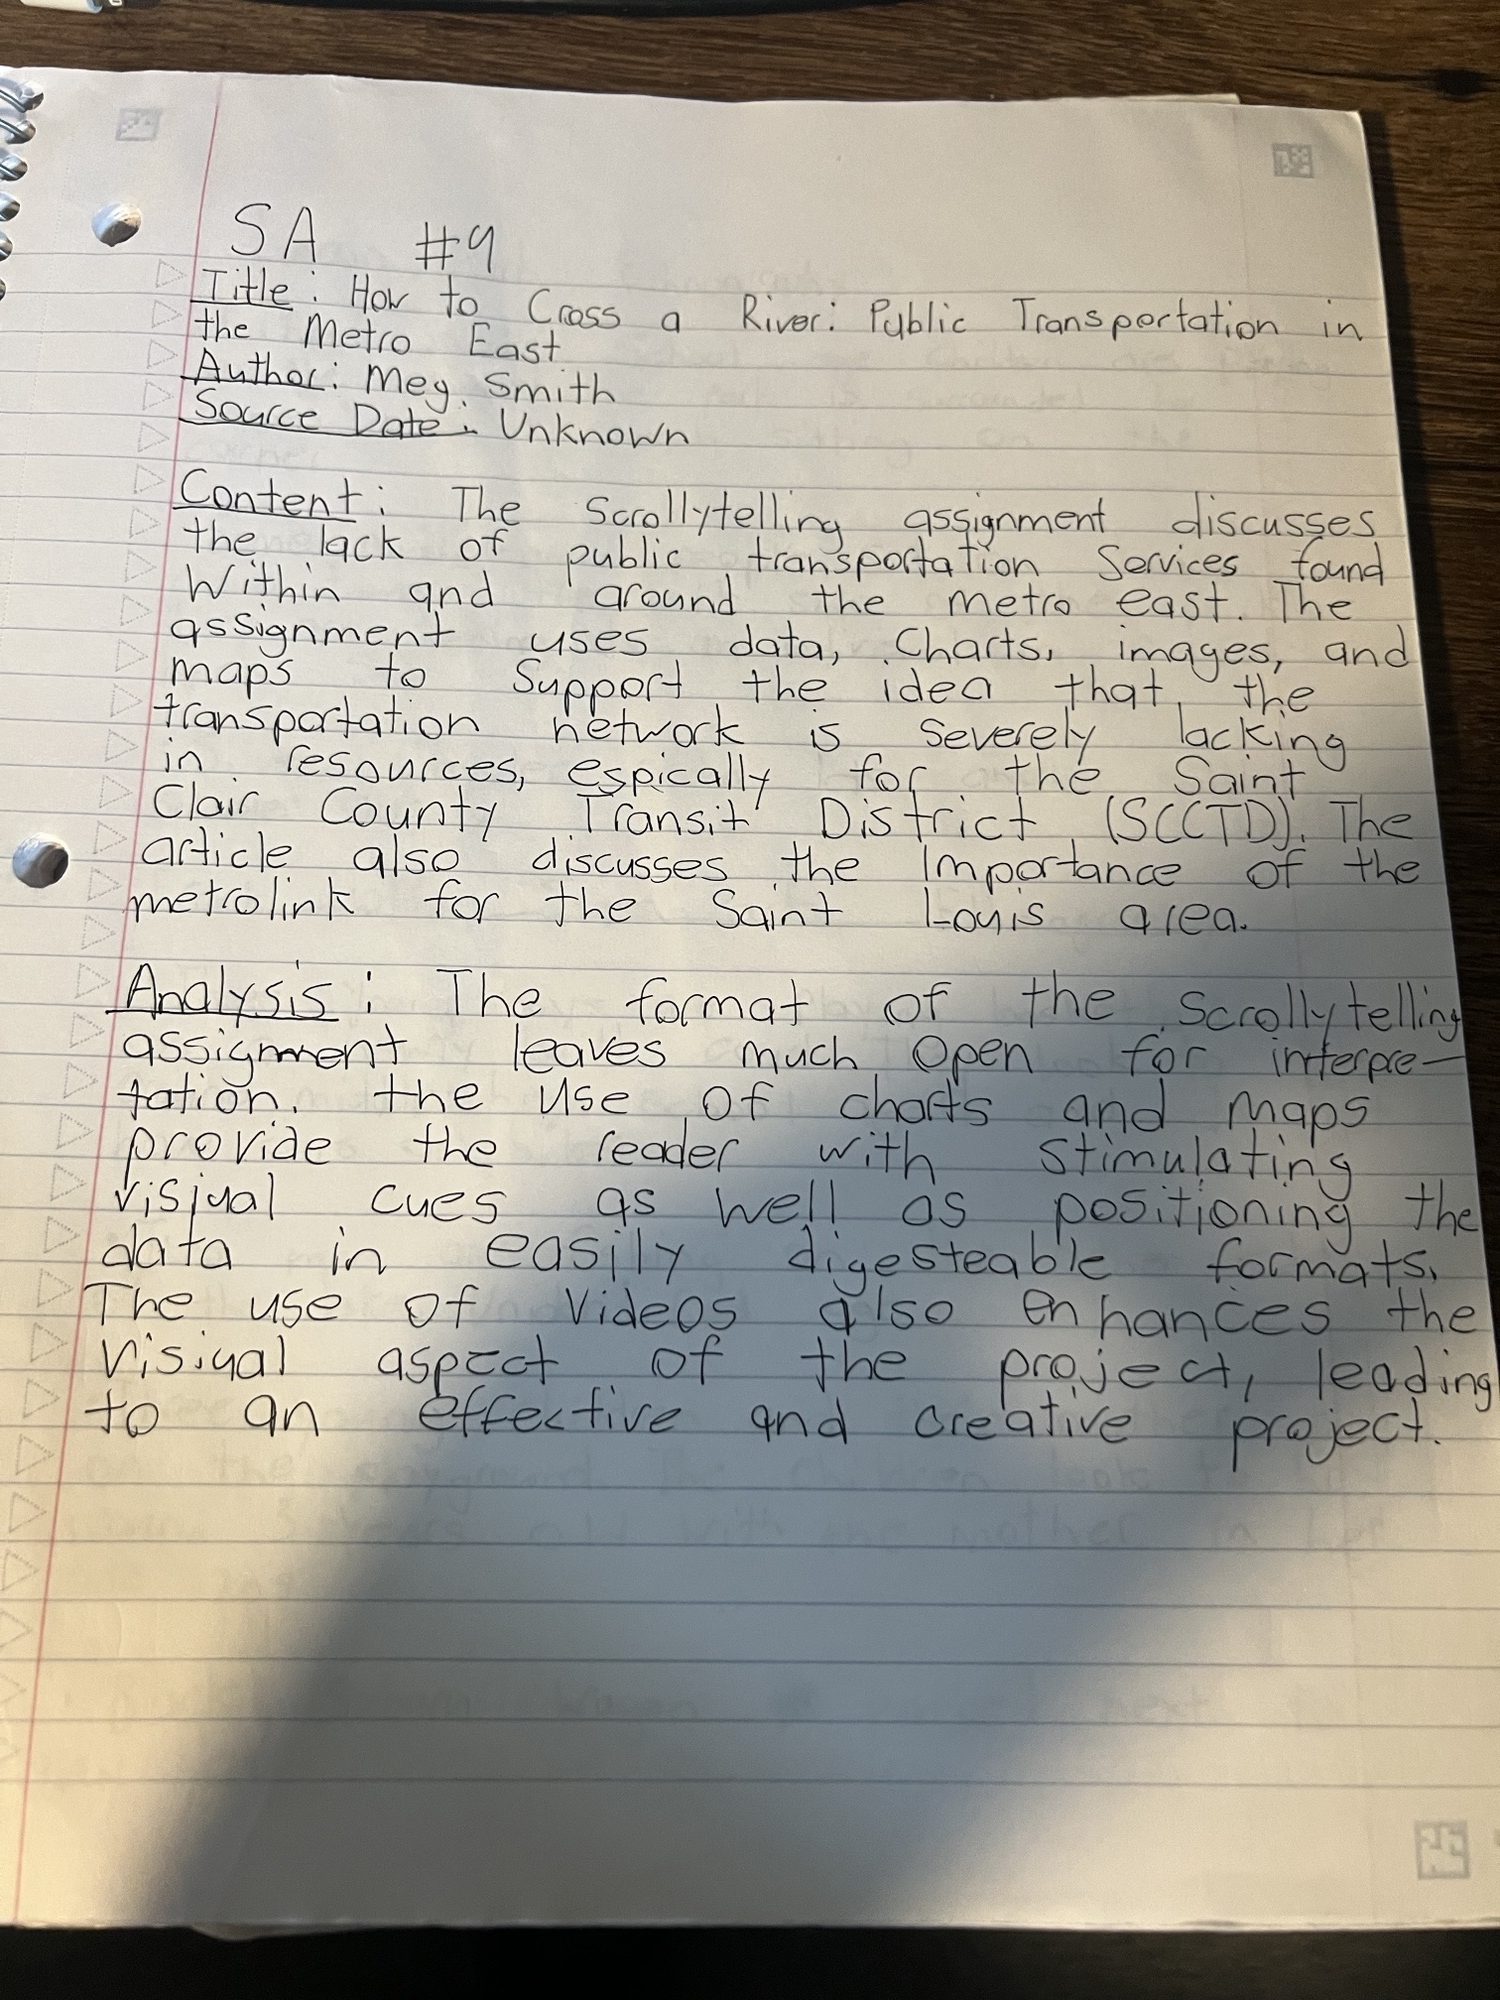 SA #9
Title: How to Cross a River: Public Transportation in
the Metro East
Author: Meg Smith
Source Date: Unknown
Content: The Scrollytelling assignment discusses
the lack of public transportation Services found
Within and around the metro east. The
assignment uses data, Charts, images, and
maps to Support the idea that the
transportation network is severely lacking
in resources, espically for the Saint
Clair County Transit District (SCCTD). The
article also discusses the Importance of the
metrolink for the Saint Louis area.
Analysis: The format of the scrollytelling
assignment leaves much open for interpre-
tation. the use of charts and maps
provide the reader with stimulating
visiual cues as well as positioning the
data in easily digesteable formats.
The use of videos also enhances the
visiual aspect of the project, leading
to an effective and creative project.